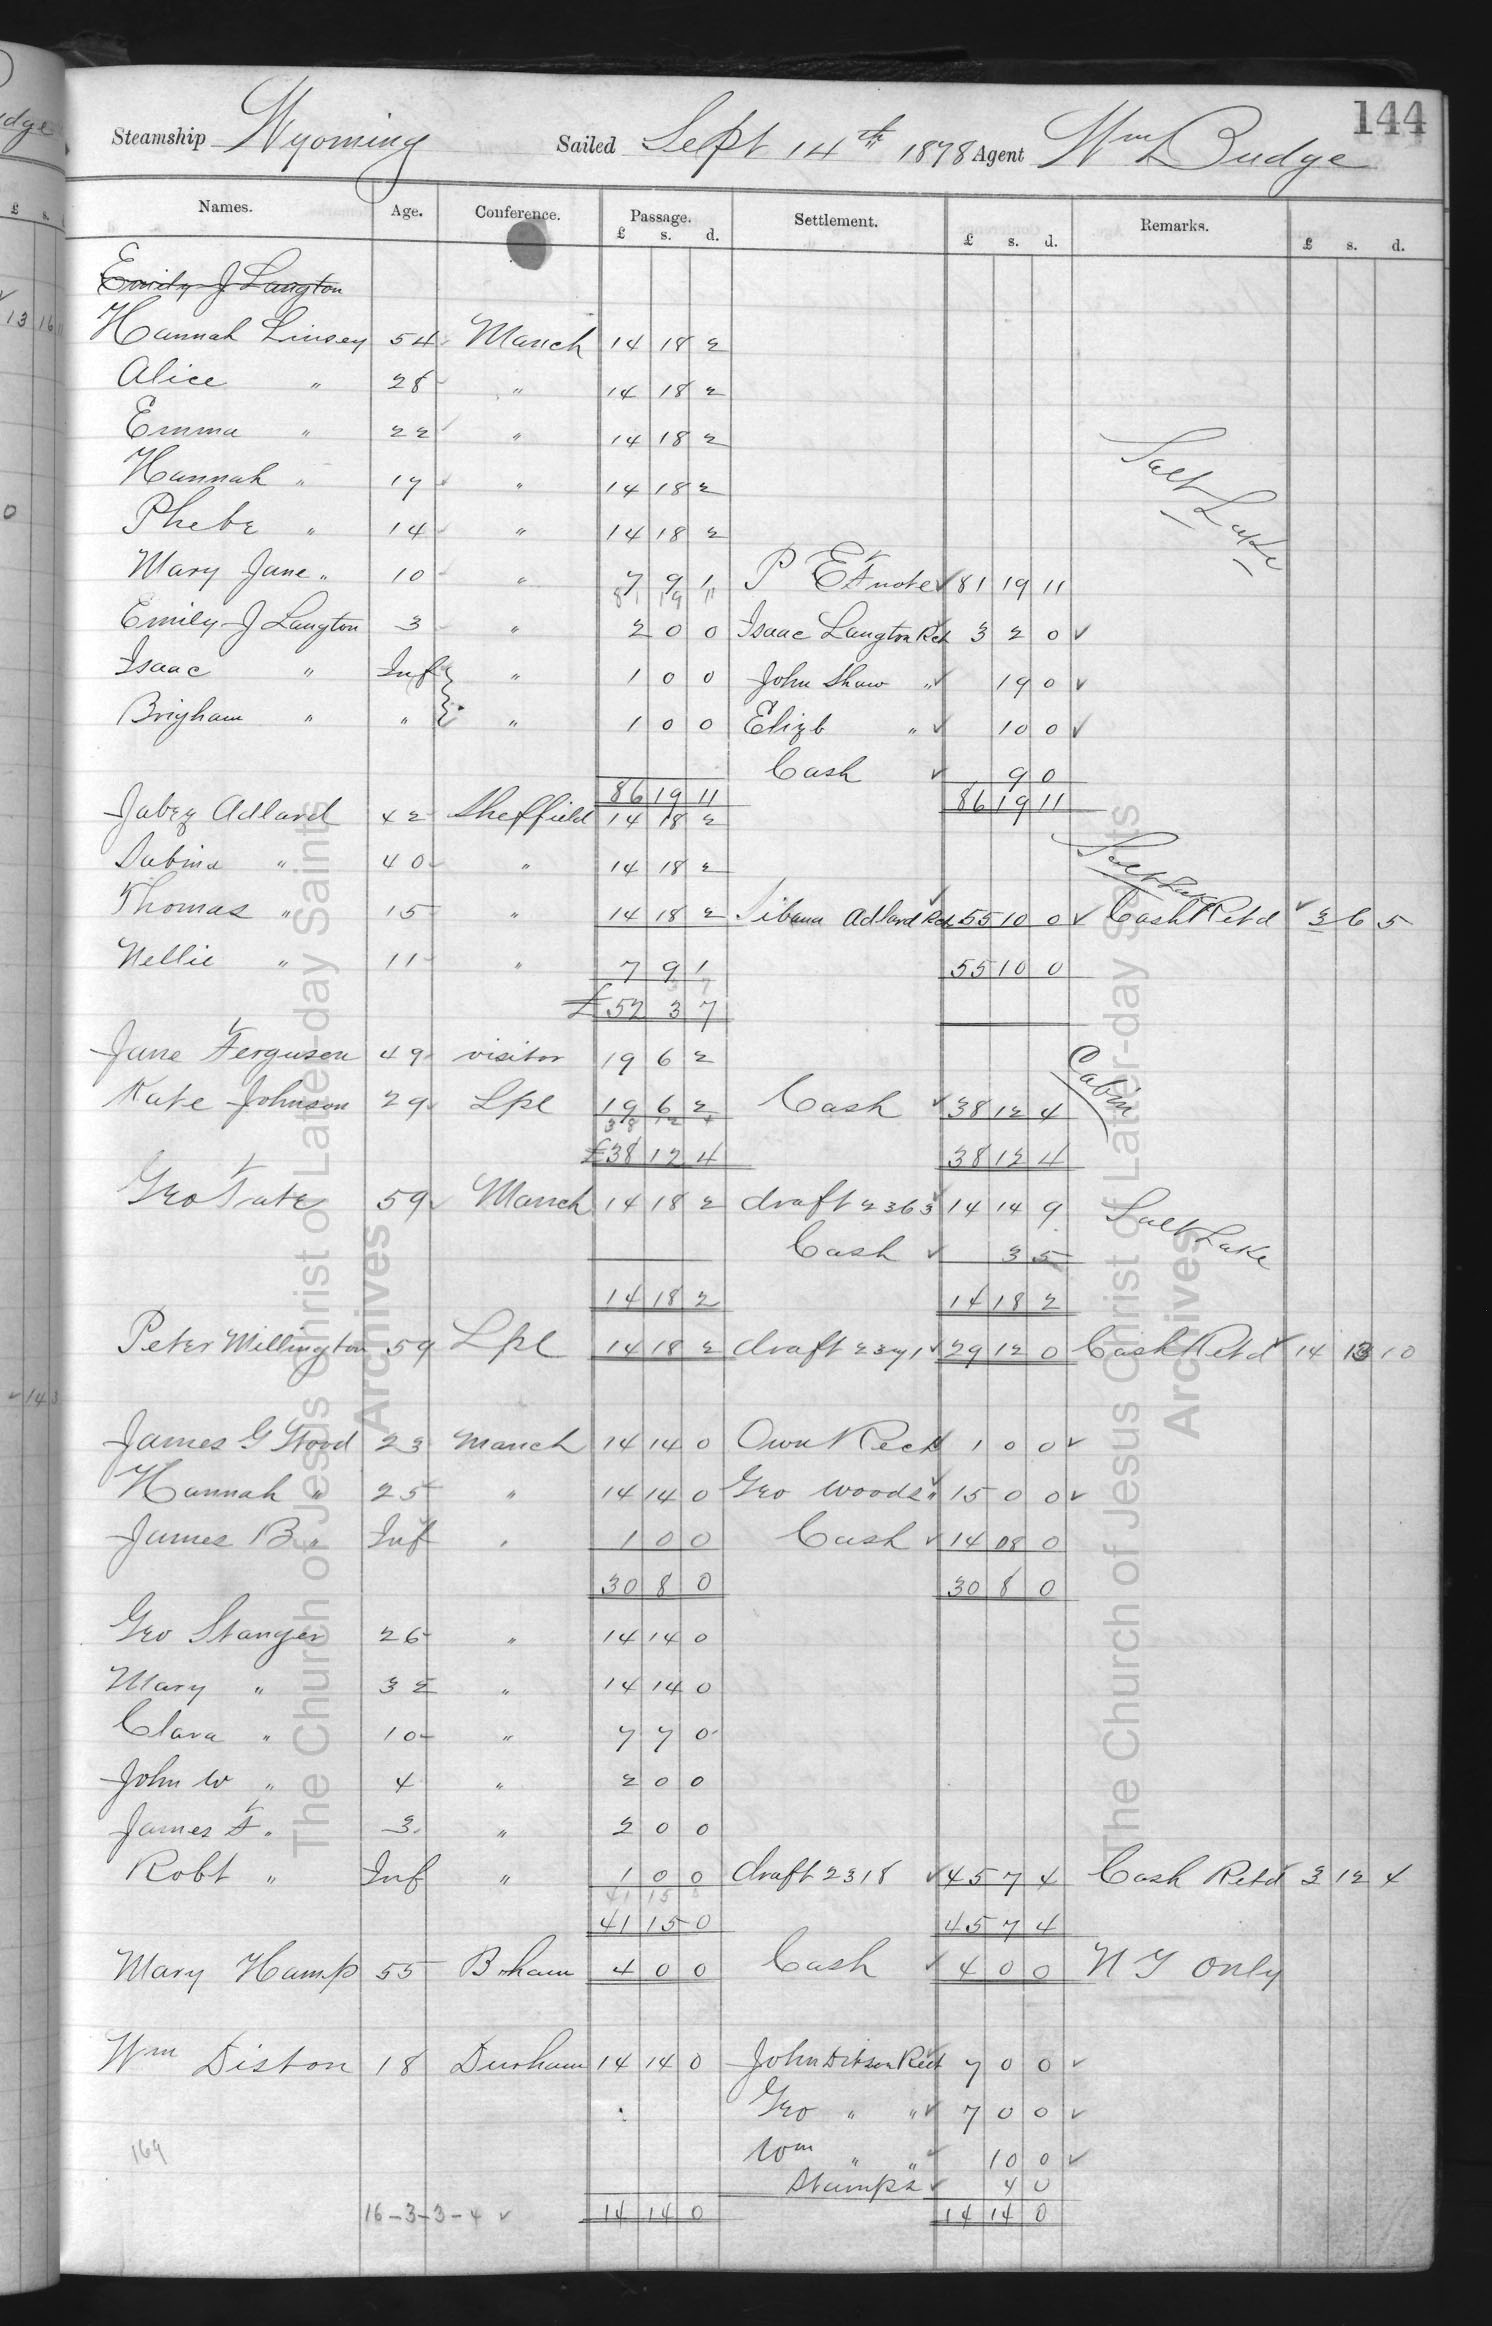 144
Steamship Wyoming Sailed Sept 14th 1878 Agent Wm Budge
Names. Age. Conference. Passage. Settlement. Remarks.
£ s. d. £ s. d. £ s. d.
Emily J Langton
Hannah Linsey 54 Manch 14 18 2
Alice " 28 " 14 18 2
Emma " 22 " 14 18 2
Hannah " 17 " 14 18 2
Salt Lake
Phebe " 14 " 14 18 2
Mary Jane " 10 " 7 9 1 P E F note 81 19 11
81 19 11
Emily J Langton 3 " 2 0 0 Isaac Langton Rct 3 2 0
Isaac " Inf " 1 0 0 John Shaw " 19 0
Brigham " " " 1 0 0 Elizb " 10 0
Cash 9 0
86 19 11 86 19 11
Jabez Adlard 42 Sheffield 14 18 2
Sabina " 40 " 14 18 2
Salt Lake
Thomas " 15 " 14 18 2 Sibana Adlard Rct 55 10 0 Cash Retd 3 6 5
Nellie " 11 " 7 9 1 55 10 0
£52 3 7
Jane Ferguson 49 visitor 19 6 2
Cabin
Kate Johnson 29 Lpl 19 6 2 Cash 38 12 4
38 12 4
£38 12 4 38 12 4
Geo Tate 59 Manch 14 18 2 draft 2363 14 14 9 Salt Lake
Cash 3 5
14 18 2 14 18 2
Peter Millington 59 Lpl 14 18 2 draft 2371 29 12 0 Cash Retd 14 13 10
James G Wood 23 Manch 14 14 0 Own Rect 1 0 0
Hannah " 25 " 14 14 0 Geo Woods " 15 0 0
James B " Inf " 1 0 0 Cash 14 08 0
30 8 0 30 8 0
Geo Stanger 26 " 14 14 0
Mary " 32 " 14 14 0
Clara " 10 " 7 7 0
John W " 4 " 2 0 0
James F " 3 " 2 0 0
Robt " Inf " 1 0 0 draft 2318 45 7 4 Cash Retd 3 12 4
41 15
41 15 0 45 7 4
Mary Hamp 55 B.ham 4 0 0 Cash 4 0 0 N Y only
Wm Diston 18 Durham 14 14 0 John Ditson Rect 7 0 0
Geo " " 7 0 0
Wm " " 10 0
169
Stamps 4 0
16-3-3-4 14 14 0 14 14 0
The Church of Jesus Christ of Latter-day Saints
Archives
The Church of Jesus Christ of Latter-day Saints
Archives